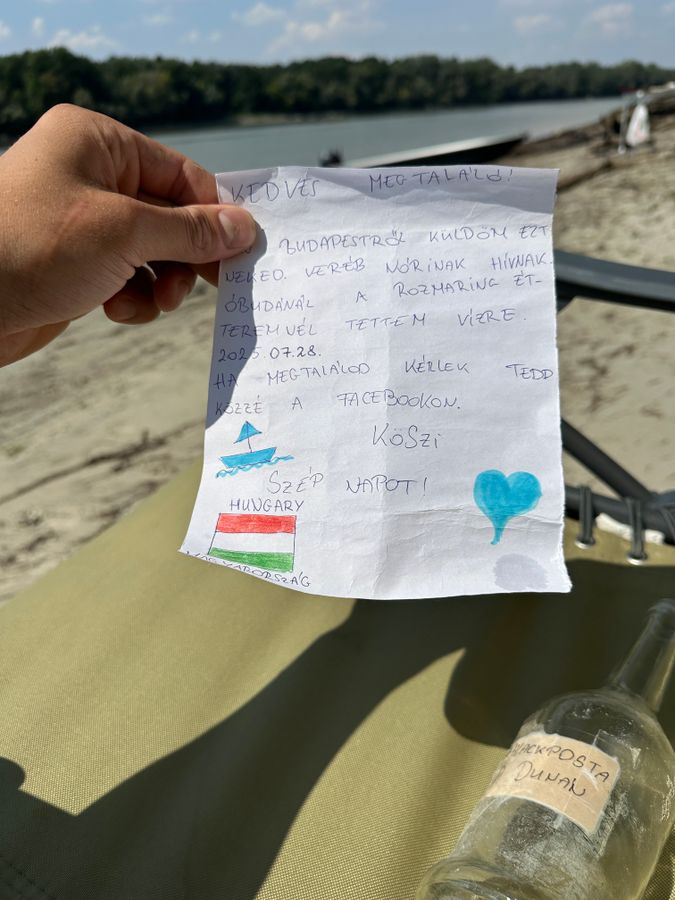 KEDVES MEGTALÁLÓ!
BUDAPESTRŐL KÜLDÖM EZT
NEKED. VERÉB NÓRINAK HÍVNAK.
ÓBUDÁNÁL A ROZMARING ÉT-
TEREMNÉL TETTEM VÍZRE.
2025.07.28.
HA MEGTALÁLOD KÉRLEK TEDD
KÖZZÉ A FACEBOOKON.
KÖSZI
SZÉP NAPOT!
HUNGARY
MAGYARORSZÁG
PALACKPOSTA
A DUNÁN